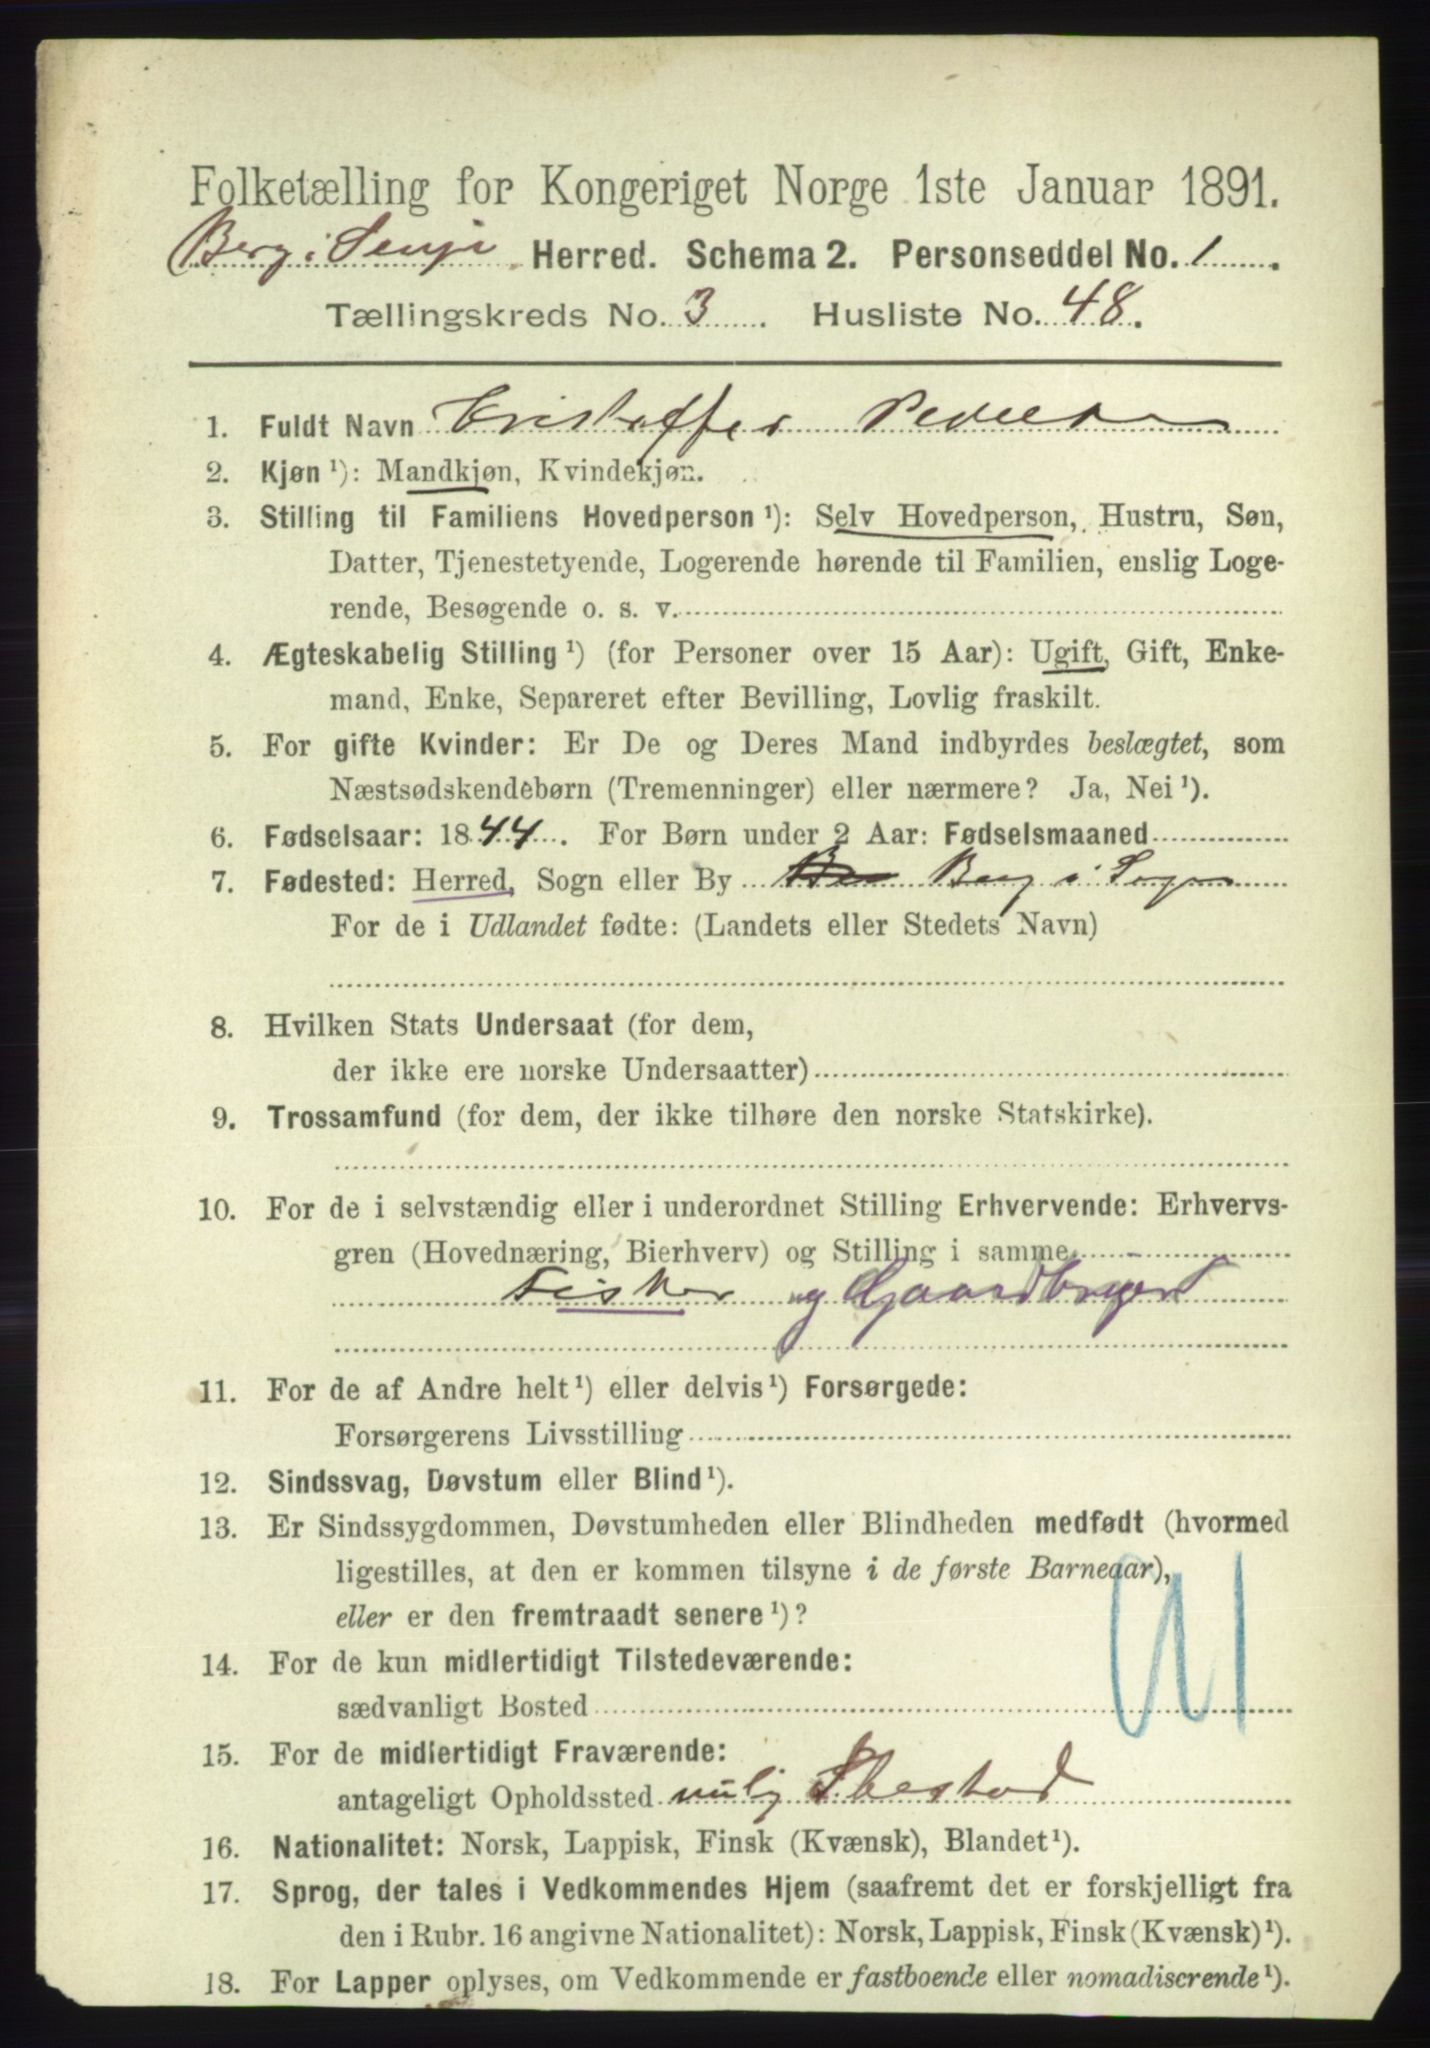 Folketælling for Kongeriget Norge 1ste Januar 1891.
Berg i Senje Herred. Schema 2. Personseddel No. 1.
Tællingskreds No. 3. Husliste No. 48.
1. Fuldt Navn Cristoffer Pedersen
2. Kjøn ¹): Mandkjøn, Kvindekjøn.
3. Stilling til Familiens Hovedperson ¹): Selv Hovedperson, Hustru, Søn,
Datter, Tjenestetyende, Logerende hørende til Familien, enslig Loge-
rende, Besøgende o. s. v.
4. Ægteskabelig Stilling ¹) (for Personer over 15 Aar): Ugift, Gift, Enke-
mand, Enke, Separeret efter Bevilling, Lovlig fraskilt.
5. For gifte Kvinder: Er De og Deres Mand indbyrdes beslægtet, som
Næstsødskendebørn (Tremenninger) eller nærmere? Ja, Nei ¹).
6. Fødselsaar: 1844. For Børn under 2 Aar: Fødselsmaaned
7. Fødested: Herred, Sogn eller By Berg i
For de i Udlandet fødte: (Landets eller Stedets Navn)
8. Hvilken Stats Undersaat (for dem,
der ikke ere norske Undersaatter)
9. Trossamfund (for dem, der ikke tilhøre den norske Statskirke).
10. For de i selvstændig eller i underordnet Stilling Erhvervende: Erhvervs-
gren (Hovednæring, Bierhverv) og Stilling i samme
Fisker og Gaardbruger
11. For de af Andre helt ¹) eller delvis ¹) Forsørgede:
Forsørgerens Livsstilling
12. Sindssvag, Døvstum eller Blind ¹).
13. Er Sindssygdommen, Døvstumheden eller Blindheden medfødt (hvormed
ligestilles, at den er kommen tilsyne i de første Barneaar),
eller er den fremtraadt senere ¹)?
14. For de kun midlertidigt Tilstedeværende:
sædvanligt Bosted
15. For de midlertidigt Fraværende:
antageligt Opholdssted
16. Nationalitet: Norsk, Lappisk, Finsk (Kvænsk), Blandet ¹).
17. Sprog, der tales i Vedkommendes Hjem (saafremt det er forskjelligt fra
den i Rubr. 16 angivne Nationalitet): Norsk, Lappisk, Finsk (Kvænsk) ¹).
18. For Lapper oplyses, om Vedkommende er fastboende eller nomadiserende ¹).